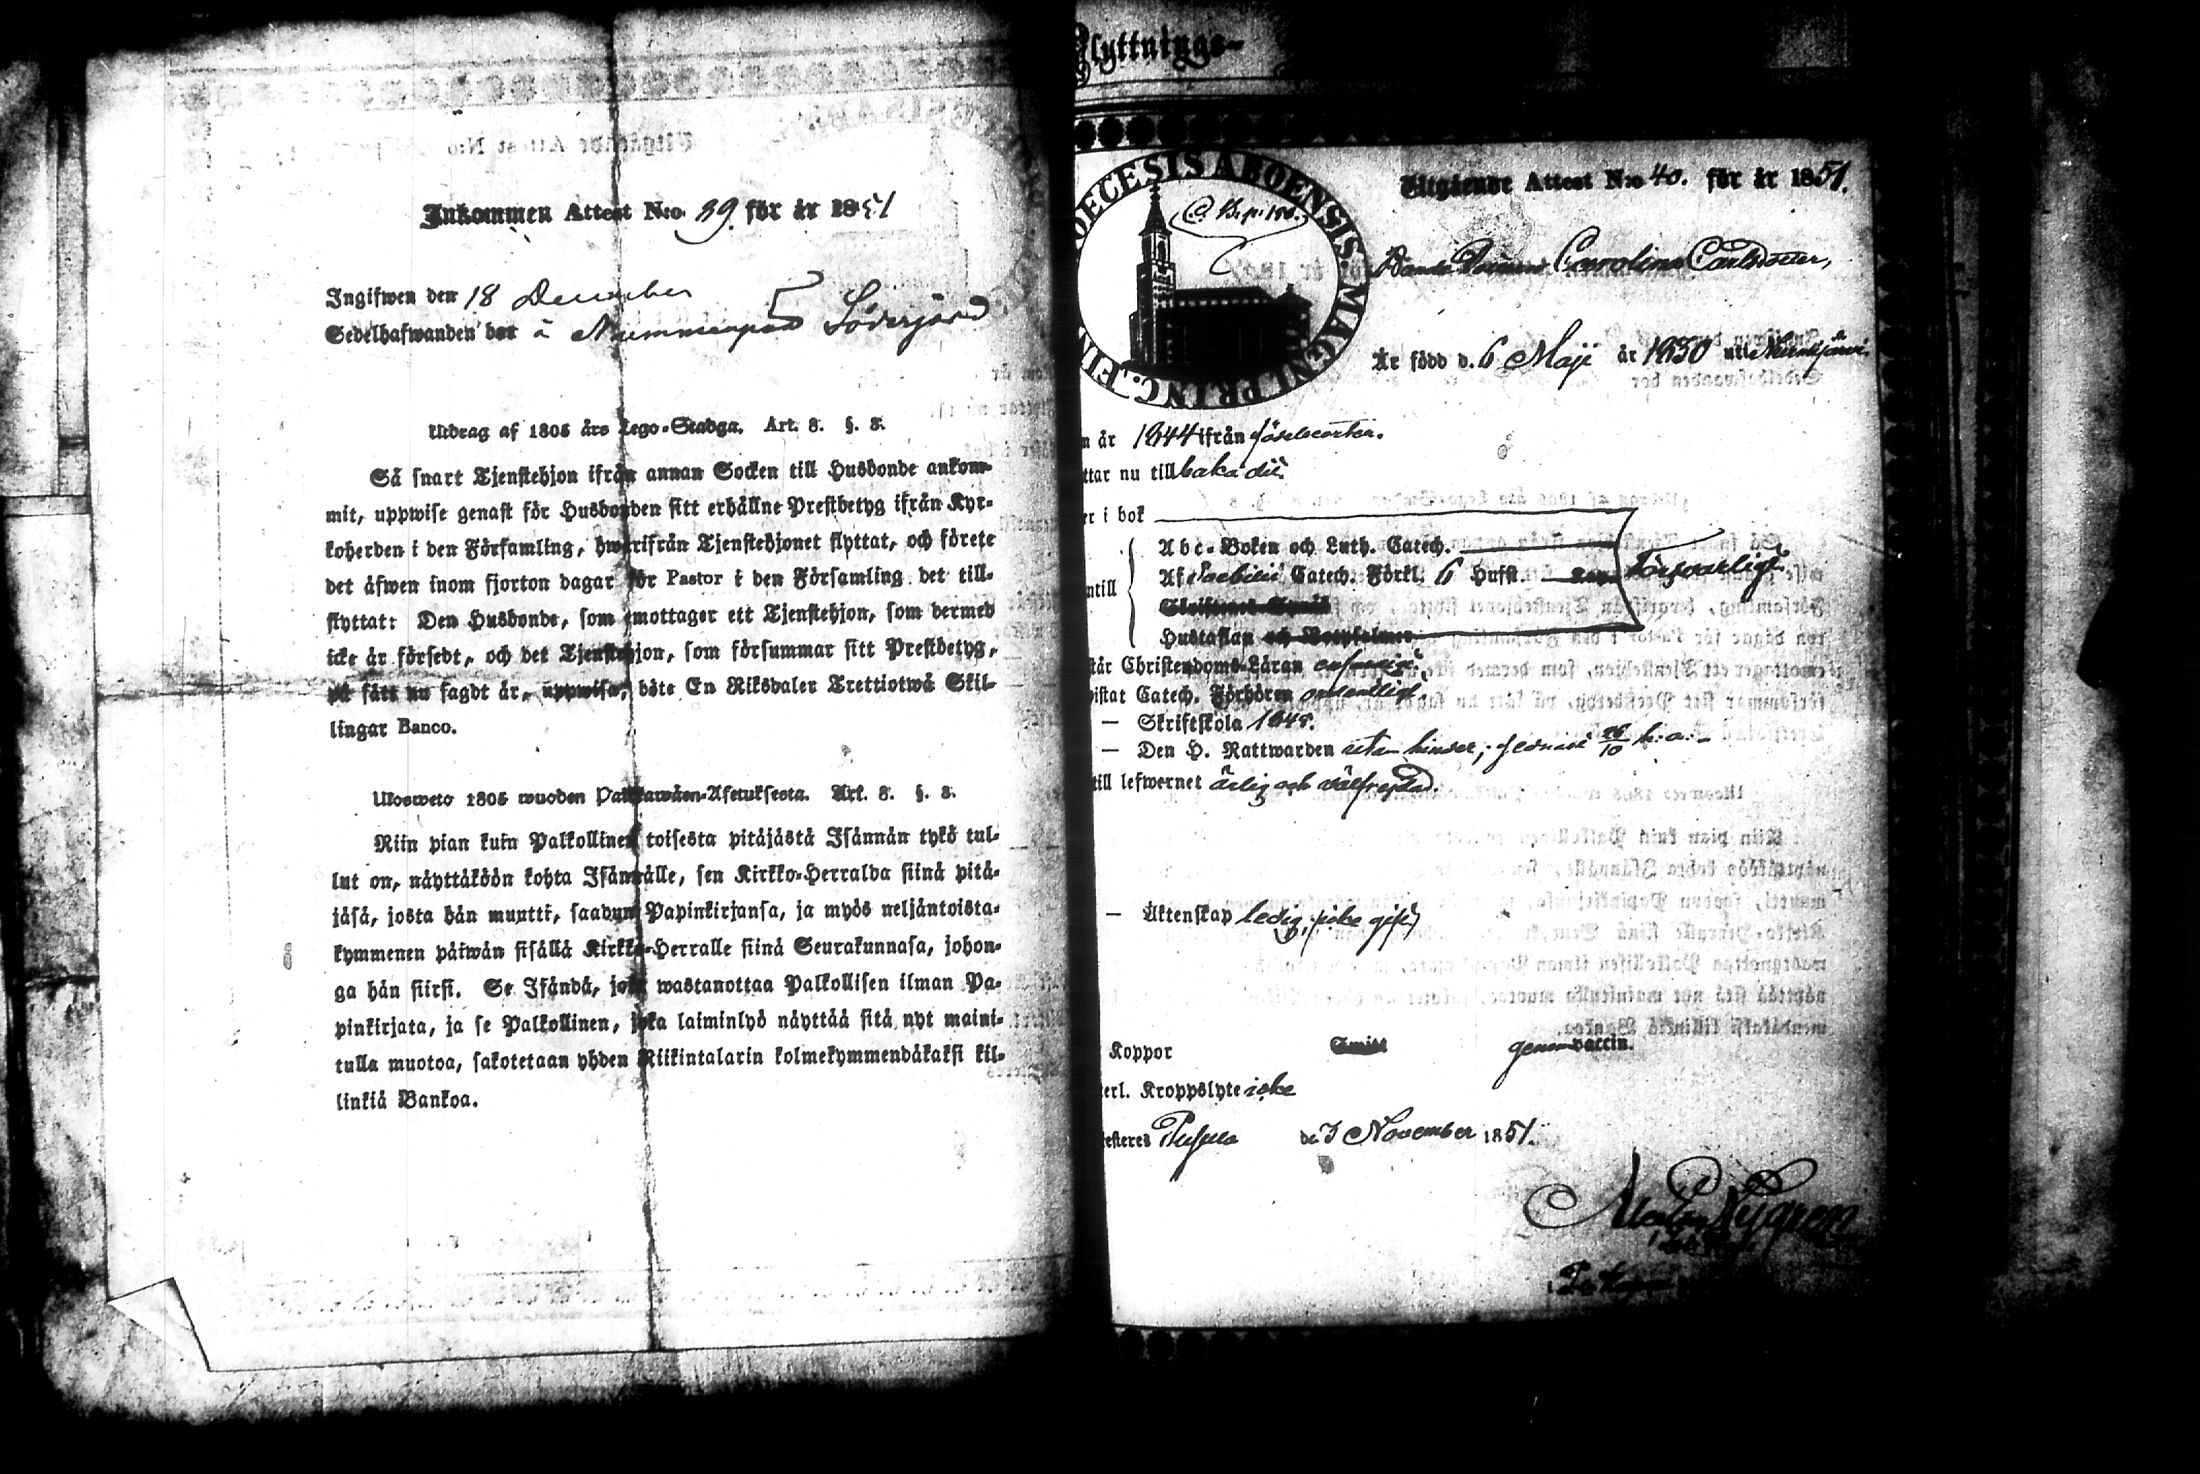 Inkommen Attest N:o 39 för år 1851
Ingifwen den 18 December
Sedelhafwanden bor å Nummenpää Södergård
Utdrag af 1805 års Lego-Stadga. Art. 8. §. 8.
Så snart Tjenstehjon ifrån annan Socken till Husbonde ankom-
mit, uppwise genast för Husbonden sitt erhållne Prestbetyg ifrån Kyr-
koherden i den Församling, hwarifrån Tjenstehjonet flyttat, och förete
det äfwen inom fjorton dagar för Pastor i den Församling det till-
flyttat: Den Husbonde, som emottager ett Tjenstehjon, som dermed
icke är försedt, och det Tjenstehjon, som försummar sitt Prestbetyg,
på sätt nu sagdt är, uppwisa, böte En Riksdaler Trettiotwå Skil-
lingar Banco.
Ulosweto 1805 wuoden Palkkawäen-Asetuksesta. Art. 8. §. 8.
Niin pian kuin Palkollinen toisesta pitäjästä Isännän tykö tul-
lut on, näyttäköön kohta Isännälle, sen Kirkko-Herralda siinä pitä-
jäsä, josta hän muutti, saadun Papinkirjansa, ja myös neljäntoista-
kymmenen päiwän sisällä Kirkko-Herralle siinä Seurakunnasa, johon-
ga hän siirsi. Se Isändä, joka wastanottaa Palkollisen ilman Pa-
pinkirjata, ja se Palkollinen, joka laiminlyö näyttää sitä nyt maini-
tulla muotoa, sakotetaan yhden Riikintalarin kolmekymmendäkaksi kil-
linkiä Bankoa.
Flyttnings-
DIOECESIS ABOENSIS MAGNI PRINC. FIN
Utgående Attest N:o 40. för år 1851.
Carolina Carlsdotter,
Är född d. 6 Maji år 1830 uti Nurmijärvi
n år 1844 ifrån
ttar nu till baka dit
er i bok
Abc-Boken och Luth. Catech.
Af Catech. Förkl. 6 Hufst. försvarligt
ntill
Hustaflan och Botpsalmer
står Christendoms-Läran
istat Catech. Förhören ordentligt
— Skriftskola
— Den H. Nattwarden utan hinder, senast 26/10 h. a.
till lefwernet ärlig och välfrejdad.
— Äktenskap ledig, icke gift
Koppor Smitt genom vaccin.
terl. Kroppslyte icke
esteres Pusula de 3 November 1851.
Nygren